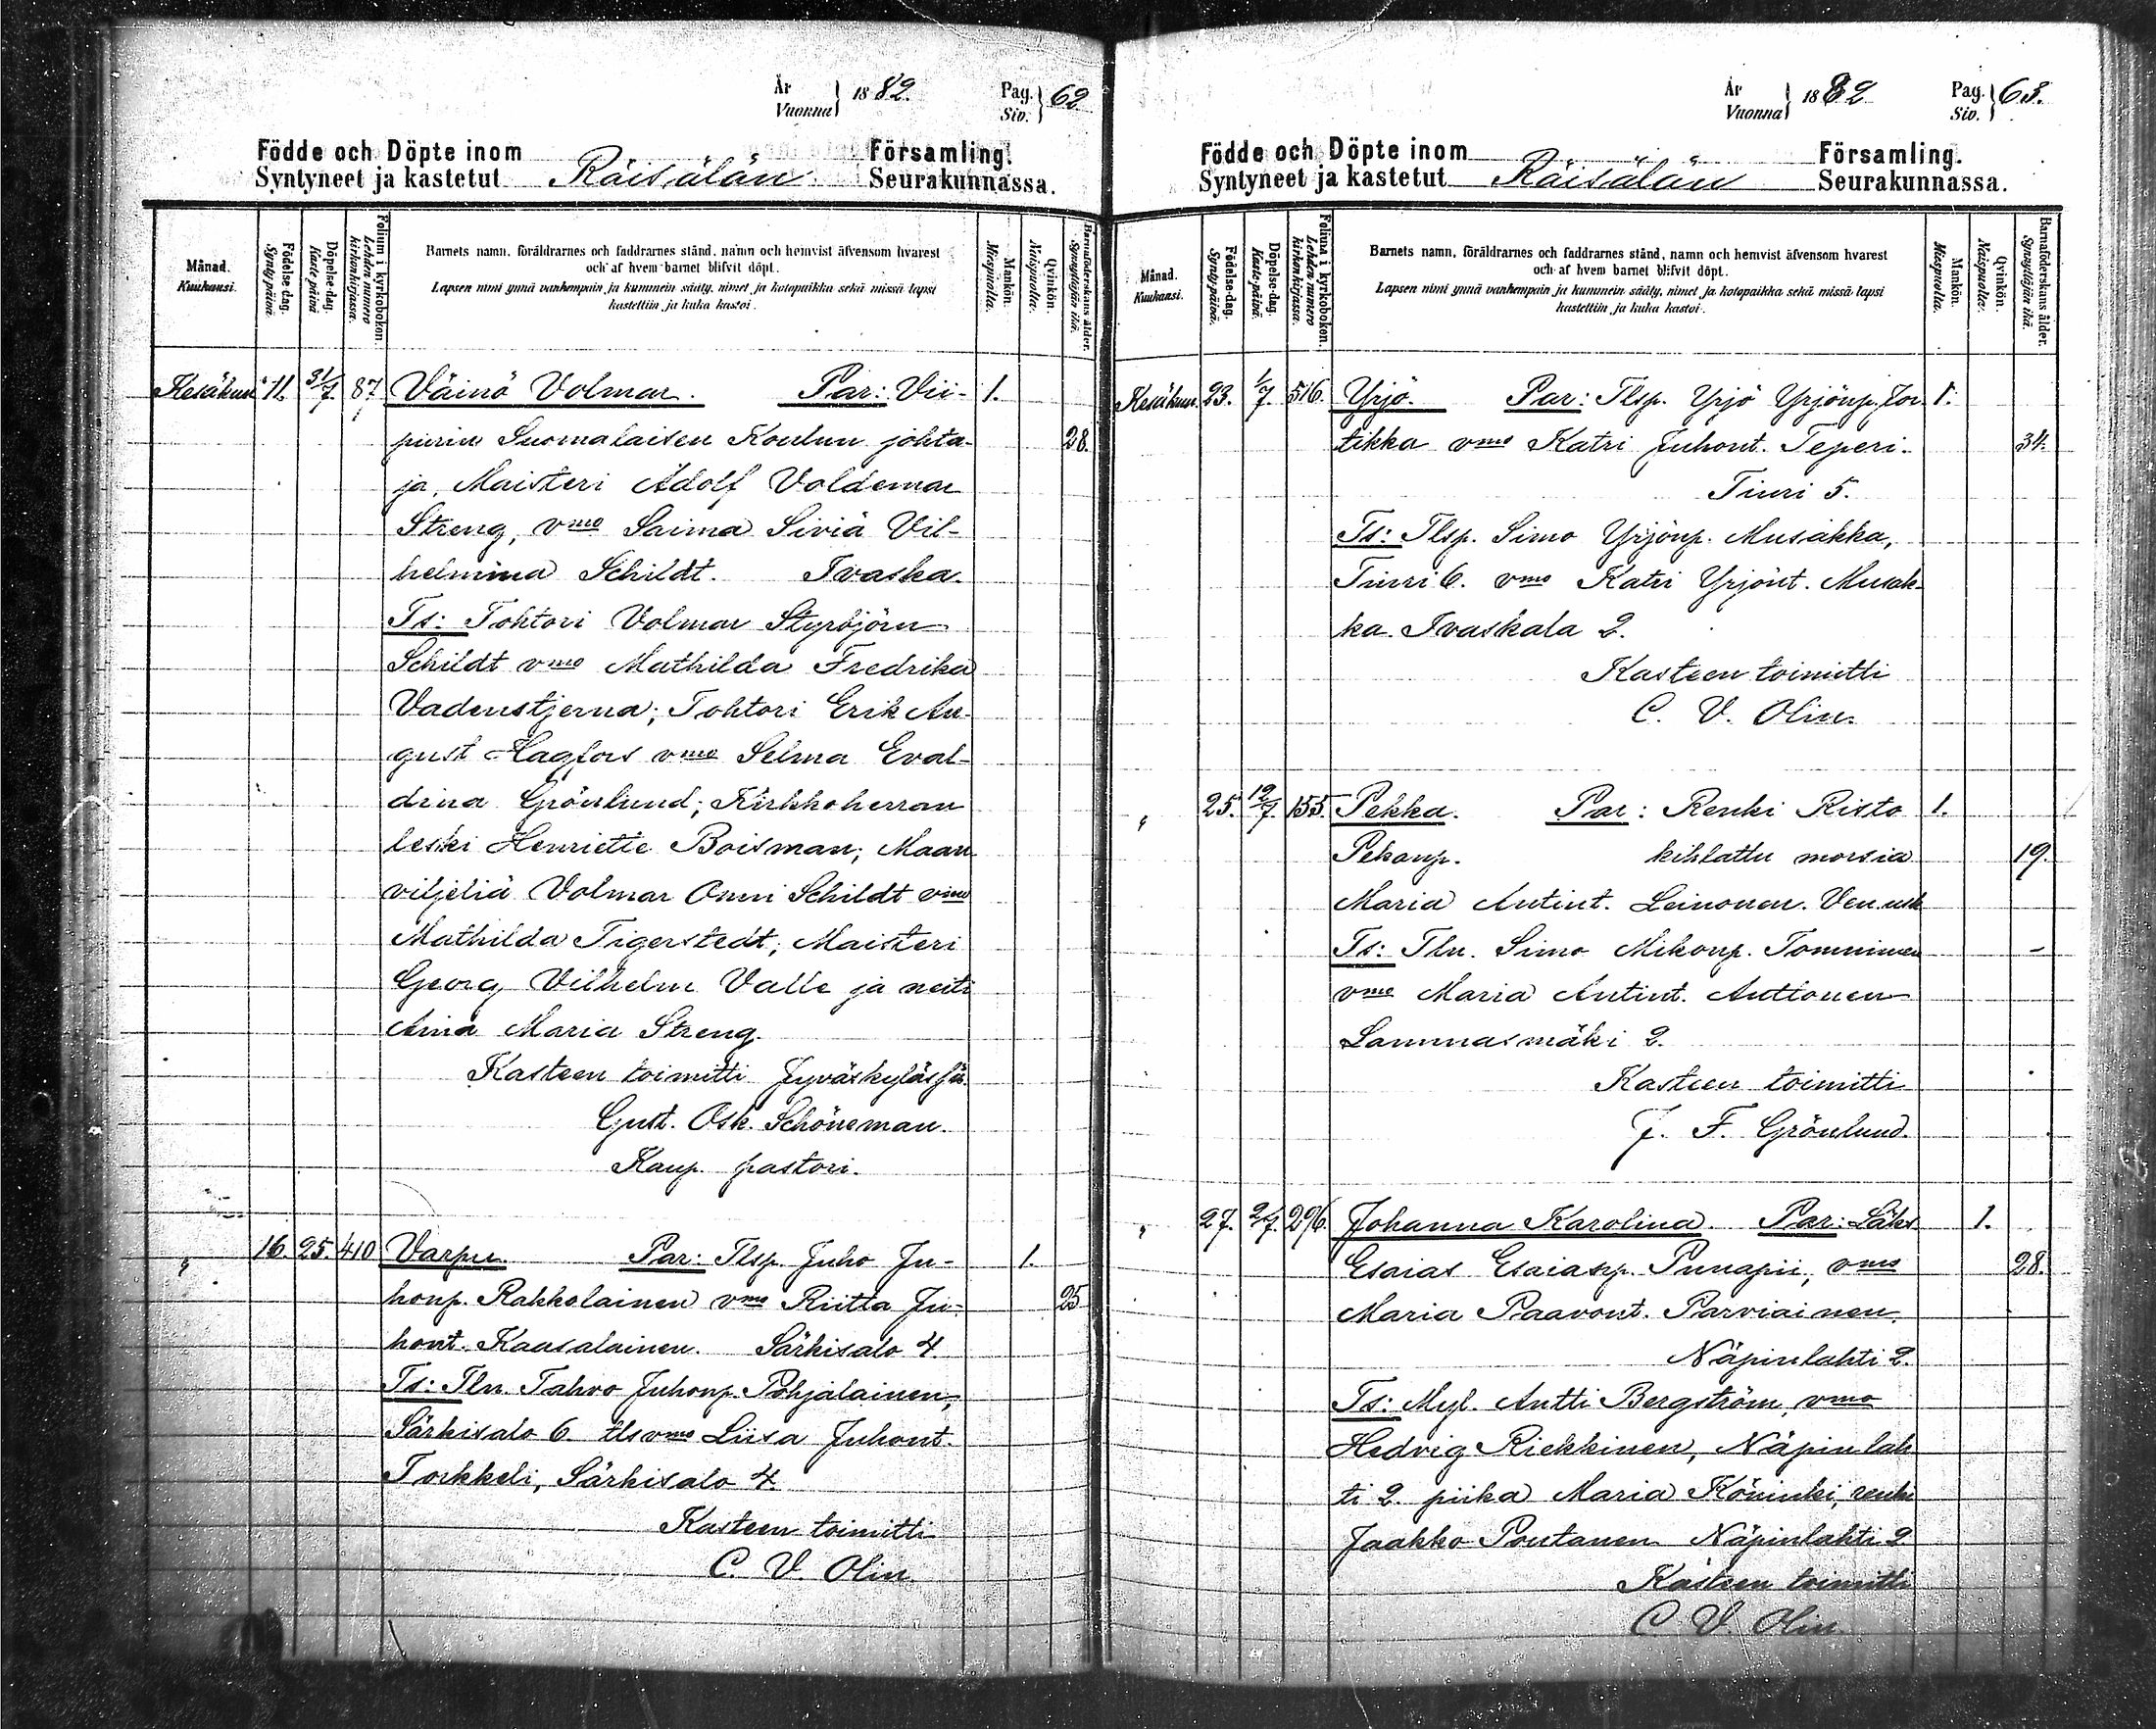 År
Vuonna } 1882.
Pag.
Siv. } 62
Födde och Döpte inom Församling.
Syntyneet ja kastetut Räisälän Seurakunnassa.
Månad.
Kuukausi.
Födelse-dag.
Synty-päivä.
Döpelse-dag.
Kaste-päivä
Folium i kyrkoboken.
Lehden numero
kirkonkirjassa.
Barnets namn, föräldrarnes och faddrarnes stånd, namn och hemvist äfvensom hvarest
och af hvem barnet blifvit döpt.
Lapsen nimi ynnä vanhempain ja kummein sääty, nimet ja kotopaikka sekä missä lapsi
kastettiin ja kuka kastoi.
Mankön.
Miespuolta.
Qvinkön.
Naispuolta.
Barnaföderskans ålder.
Synnyttäjän ikä.
Kesäkuu 11. 31/7. 87 Väinö Volmar. Par: Vii- 1.
purin Suomalaisen Koulun johta- 28.
ja, Maisteri Adolf Valdemar
Streng, vmo Saima Siviä Vil-
helmina Schildt. Ivaska.
Ts: Tohtori Volmar Styrbjörn
Schildt vmo Mathilda Fredrika
Vadenstjerna; Tohtori Erik Au-
gust Hagfors vmo Selma Eval-
dina Grönlund; Kirkkoherran
leski Henriette Boisman; Maan
viljeliä Volmar Onni Schildt vmo
Mathilda Tigerstedt; Maisteri
Georg Vilhelm Valle ja neiti
Aina Maria Streng.
Kasteen toimitti Jyväskylässä
Gust. Osk. Schöneman.
Kaup. pastori.
" 16. 25. 410 Varpu. Par: Tlsp. Juho Ju- 1.
honp. Rakkolainen vmo Riitta Ju- 25
hont. Kaasalainen. Särkisalo 4.
Ts: Tln. Tahvo Juhonp. Pohjalainen,
Särkisalo 6. tlsvmo Liisa Juhont.
Torkkeli, Särkisalo 4.
Kasteen toimitti
C. V. Olin
År
Vuonna } 1882
Pag.
Siv. } 63.
Födde och Döpte inom Församling.
Syntyneet ja kastetut Räisälän Seurakunnassa.
Månad.
Kuukausi.
Födelse-dag.
Synty-päivä.
Döpelse-dag.
Kaste-päivä.
Folium i kyrkoboken.
Lehden numero
kirkonkirjassa.
Barnets namn, föräldrarnes och faddrarnes stånd, namn och hemvist äfvensom hvarest
och af hvem barnet blifvit döpt.
Lapsen nimi ynnä vanhempain ja kummein sääty, nimet ja kotopaikka sekä missä lapsi
kastettiin ja kuka kastoi.
Mankön.
Miespuolta.
Qvinkön.
Naispuolta.
Barnaföderskans ålder.
Synnyttäjän ikä.
Kesäkuu. 23. 1/7. 516. Yrjö. Par: Tlsp. Yrjö Yrjönp. Tor- 1.
tikka vmo Katri Juhont. Teperi. 34.
Tiuri 5.
Ts: Tlsp. Simo Yrjönp. Musakka,
Tiuri 6. vmo Katri Yrjönt. Musak-
ka. Ivaskala 2.
Kasteen toimitti
C. V. Olin.
" 25. 12/7. 155. Pekka. Par: Renki Risto 1.
Pekanp. kihlattu morsia 19.
Maria Antint. Leinonen. Ven. usk
Ts: Tln. Simo Mikonp. Tomminen
vmo Maria Antint. Anttonen
Lammasmäki 2.
Kasteen toimitti
J. F. Grönlund.
" 27. 2/7. 296. Johanna Karolina. Par: Läks 1.
Esaias Esaiasp. Punapii, vmo 28.
Maria Paavont. Parviainen.
Näpinlahti 2.
Ts: Myl. Antti Bergström, vmo
Hedvig Riekkinen, Näpinlah
ti 2. piika Maria Köninki, renki
Jaakko Poutanen Näpinlahti 2
Kasteen toimitti
C. V. Olin